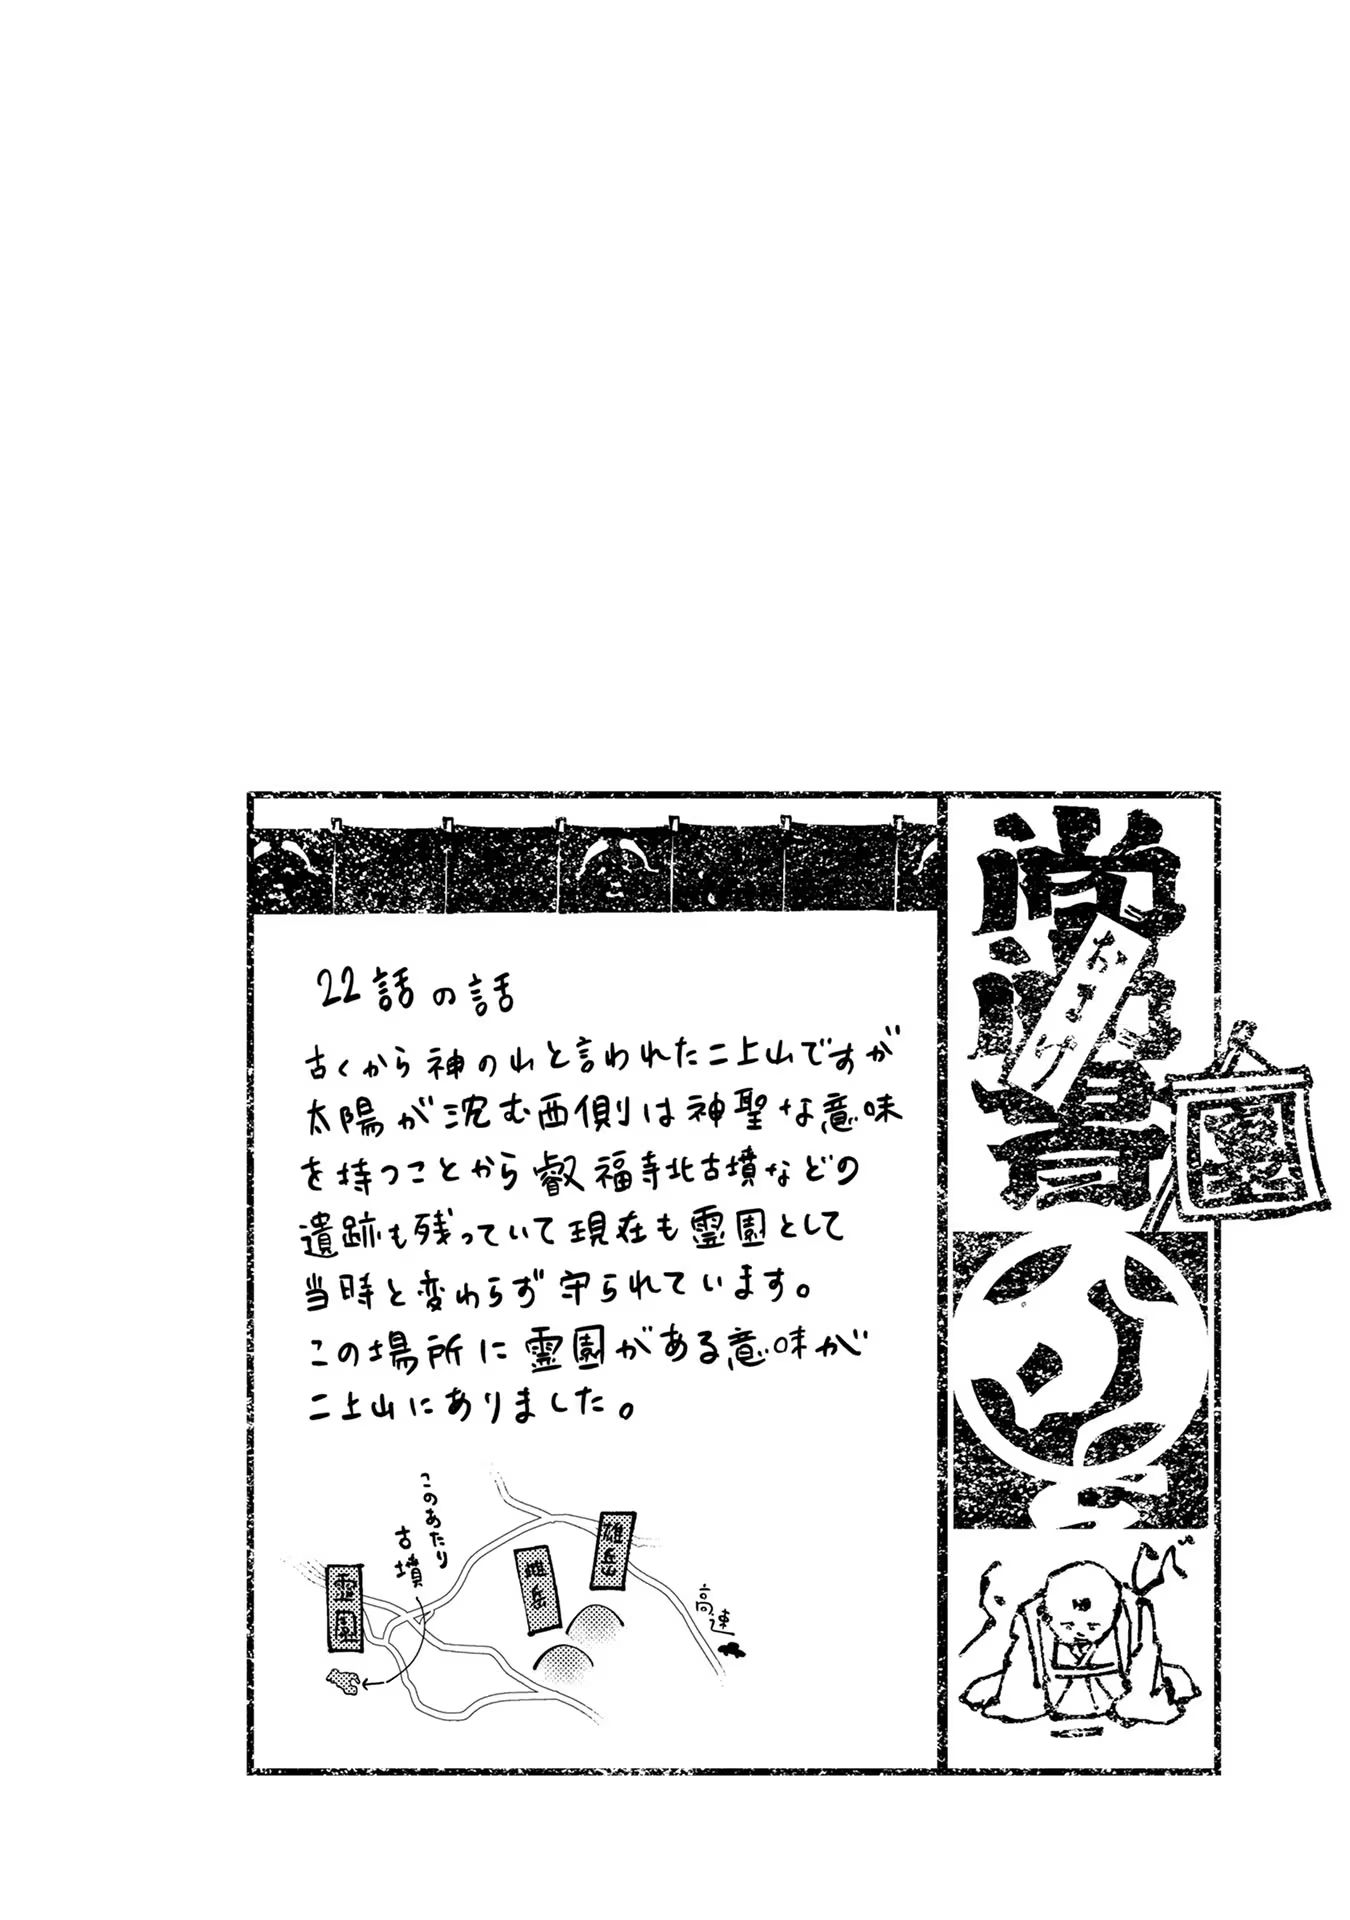 22話の話
古くから神の山と言われた二上山ですが
太陽が沈む西側は神聖な意味
を持つことから叡福寺北古墳などの
遺跡も残っていて現在も霊園として
当時と変わらず守られています。
この場所に霊園がある意味が
二上山にありました。
このあたり
古墳
霊園
雌岳
雄岳
高速
おまけ